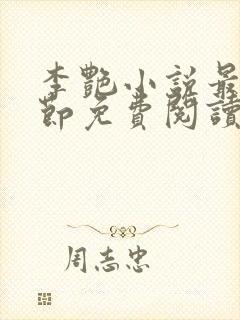 李艷小说最
節免費閱讀
周志忠